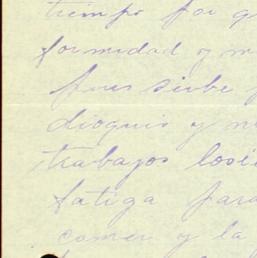 tiempo por q
formidad y m
pues sirbe
dioquis y m
trabajos losé
fatiga para
comer y la